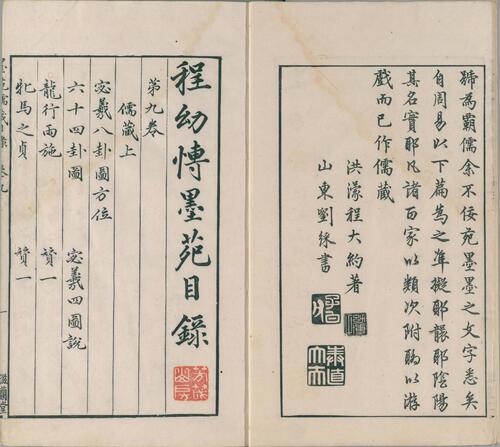 號為霸儒余不佞苑墨墨之文字悉矣
自周易以下篇蔦之準擬耶讔耶陰陽
其名實耶凡諸百家以類次附聊以游
戲而已作儒藏
洪濛程大約著
山東劉然書
程幼博墨苑目錄
第九卷
儒藏上
宓羲八卦圖方位
六十四卦圖
宓羲四圖說
龍行雨施
贊一
牝馬之貞
贊一